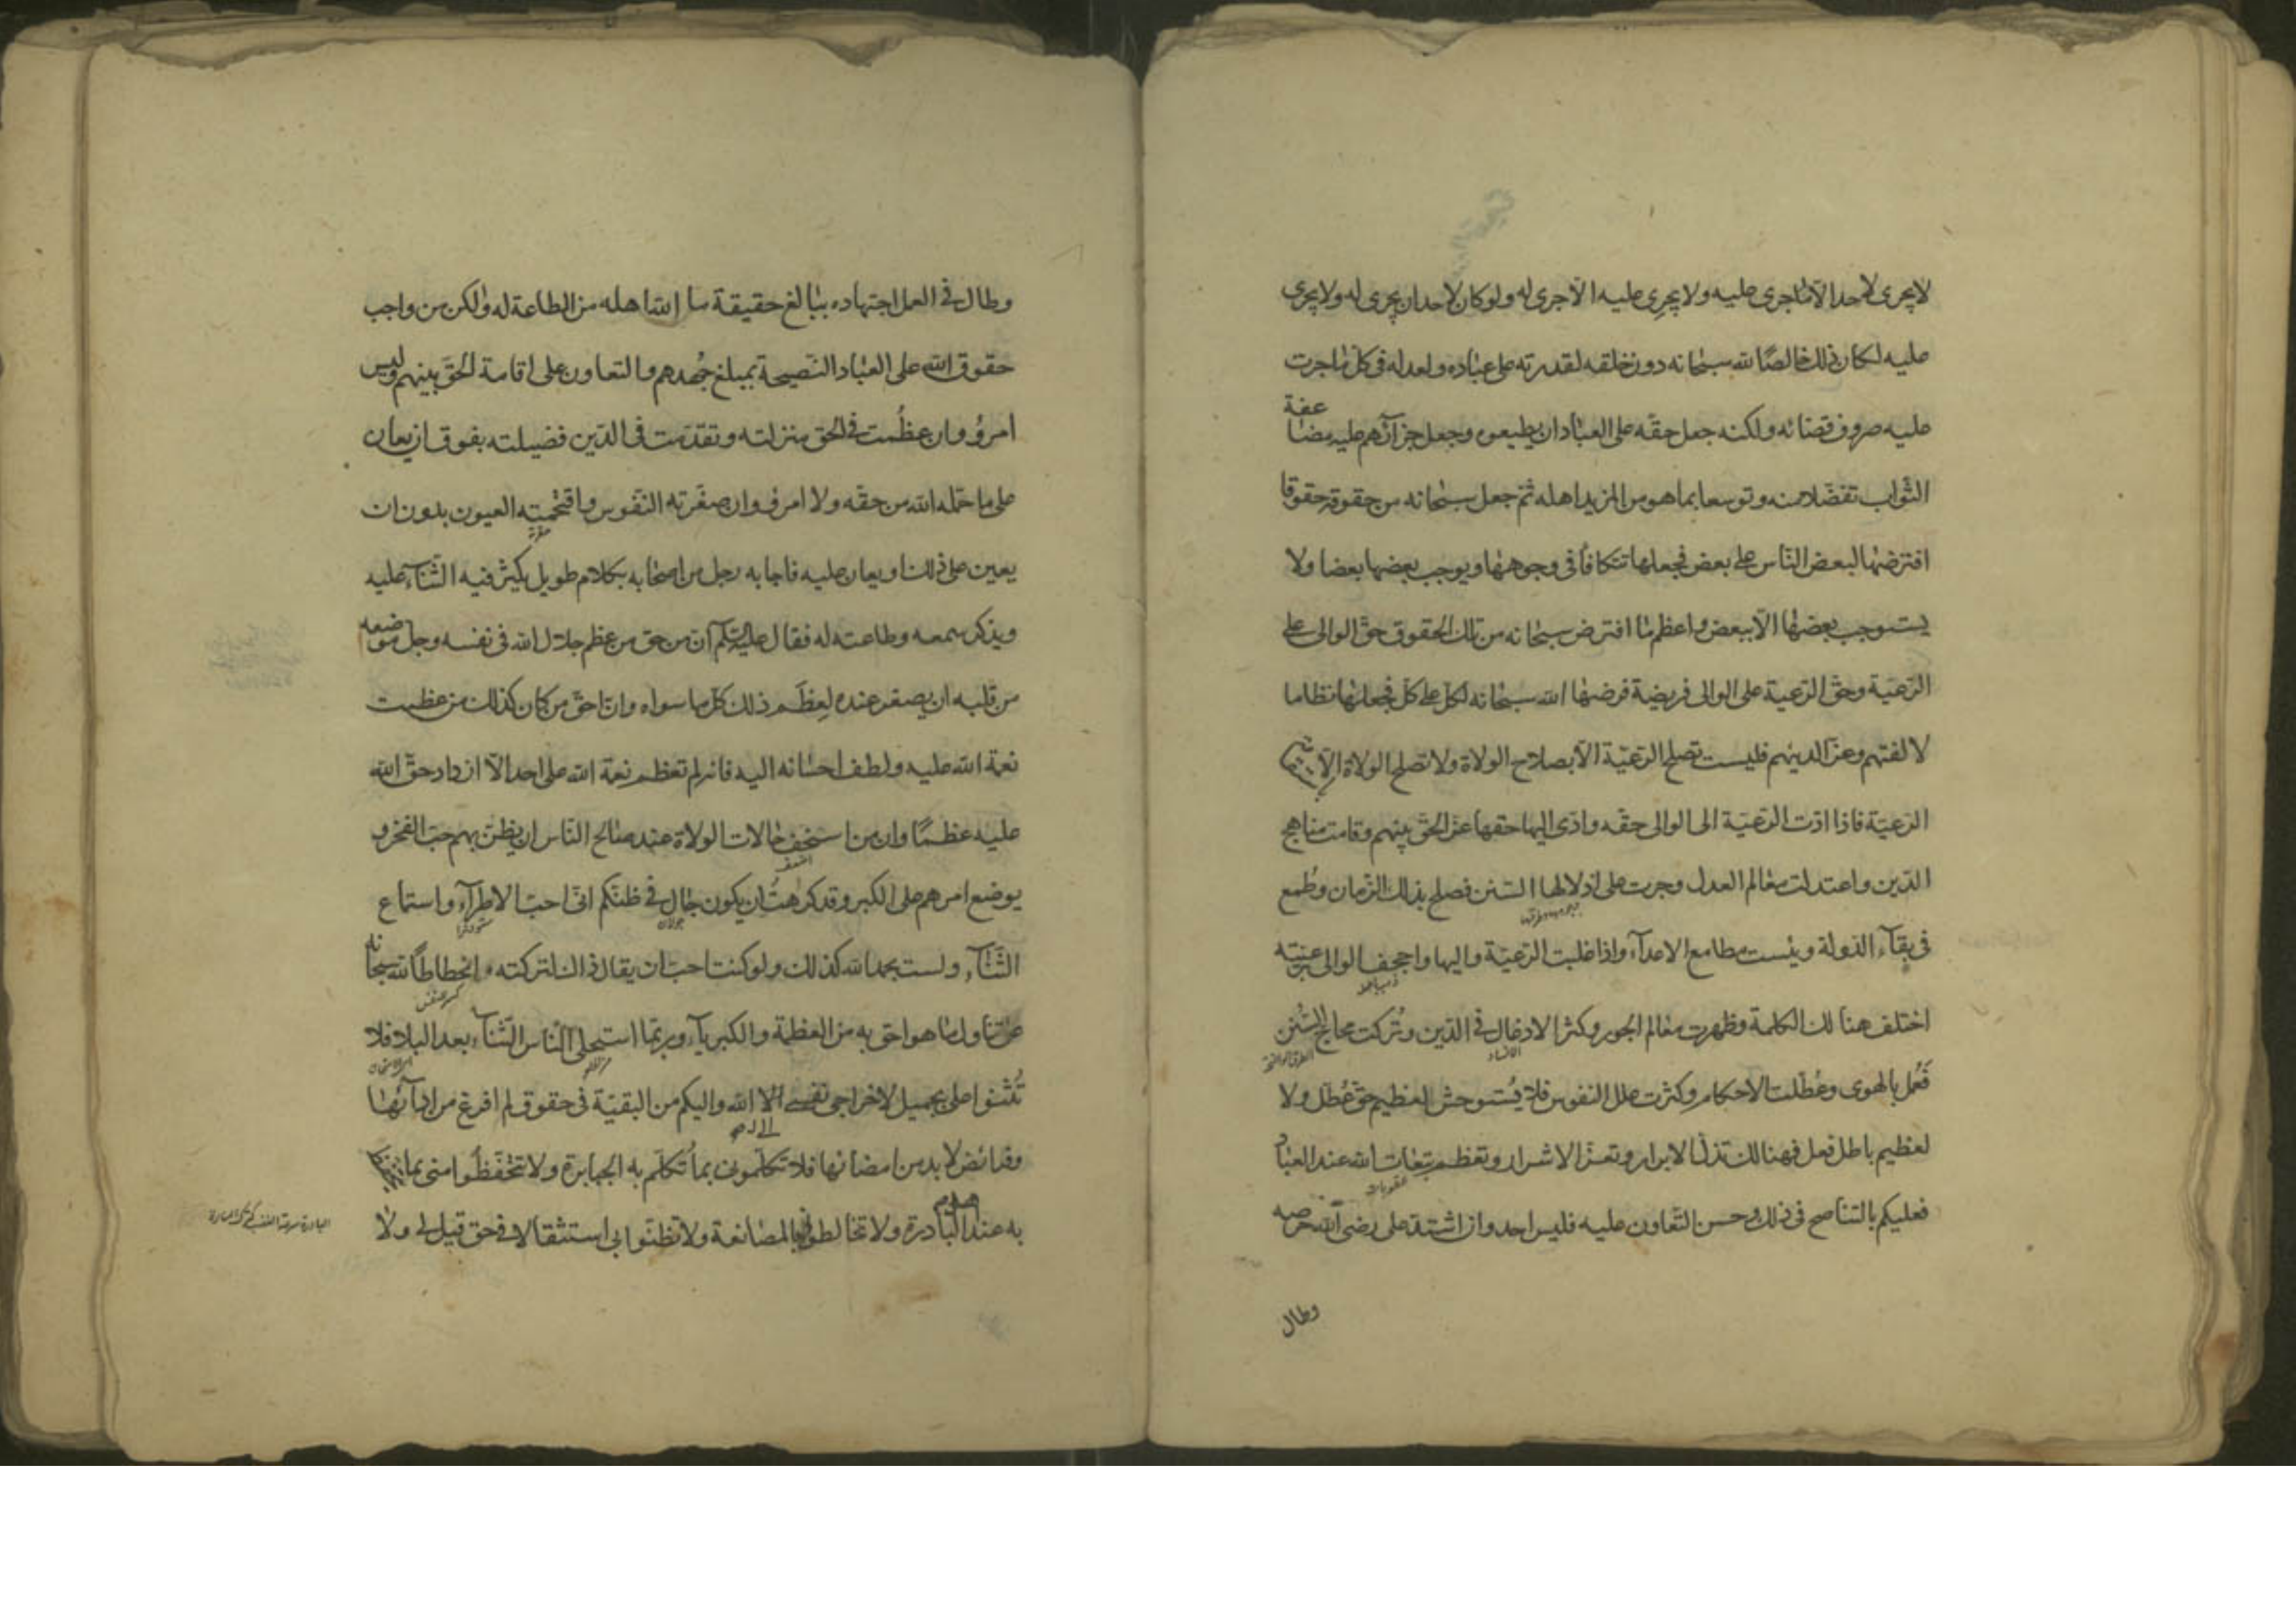 لا يجرى لاحد الّا ما جرى عليه ولا يجرى عليه الّا جرى له ولو كان لاحد ان يجرى له ولا يجرى
عليه لكان ذلك خالصًا لله سبحانه دون خلقه لقدرته على عباده ولعدله فى كل ما جرت
عليه صروف قضائه ولكنه جعل حقه على العباد ان يطيعوه وجعل جزآئهم عليه مضاعفة
الثواب تفضلا منه وتوسعا بما هو من المزيد اهله ثم جعل سبحانه من حقوقه حقوقا
افترضها لبعض الناس على بعض فجعلها تتكافأ فى وجوهها ويوجب بعضها بعضا ولا
يستوجب بعضها الّا ببعض واعظم ما افترض سبحانه من تلك الحقوق حق الوالى على
الرّعيّة وحق الرّعية على الوالى فريضة فرضها الله سبحانه لكل على كل فجعلها نظاما
لالفتهم وعزّا لدينهم فليست تصلح الرّعيّة الّا بصلاح الولاة ولا تصلح الولاة الّا
الرّعيّة فاذا ادّت الرّعيّة الى الوالى حقه وادّى اليها حقها عز الحق بينهم وقامت مناهج
الدّين واعتدلت معالم العدل وجرت على اذلالها السنن فصلح بذلك الزمان وطمع
فى بقآء الدّولة ويئست مطامع الاعدآء واذا غلبت الرّعيّة واليها واجحف الوالى برعيته
اختلف هنالك الكلمة وظهرت معالم الجور وكثر الادغال فى الدّين وتُركت محاجّ السُّنن
الافساد
فعُمل بالهوى وعُطّلت الاحكام وكثرت علل النفوس فلا يُستوحش لعظيم حق عُطّل ولا
لعظيم باطل فعل فهنالك تذلّ الابرار وتعزّ الاشرار وتعظم تبعات الله عند العباد
عقوبات
فعليكم بالتناصح فى ذلك وحسن التعاون عليه فليس احد وان اشتد على رضى الله حرصه
وطال
وطال فى العمل اجتهاده ببالغ حقيقة ما الله اهله من الطاعة له ولكن من واجب
حقوق الله على العباد النّصيحة بمبلغ جُهدهم والتعاون على اقامة الحق بينهم وليس
امرؤ وان عظُمت فى الحق منزلته وتقدّمت فى الدّين فضيلته بفوق ان يعان
على ما حمّله الله من حقه ولا امرؤ وان صغّرته النّفوس واقتحمته العيون بدون ان
يعين على ذلك او يعان عليه فاجابه رجل من اصحابه بكلام طويل يكثر فيه الثنآء عليه
ويذكر سمعه وطاعته له فقال عليه السّلم انّ من حق من عظم جلال الله فى نفسه وجل موضعه
من قلبه ان يصغر عنده لعِظَم ذلك كل ما سواه وانّ احق من كان كذلك من عظمت
نعمة الله عليه ولطف احسانه اليه فانه لم تعظم نعمة الله على احد الّا ازداد حق الله
عليه عظمًا وان من اسخف حالات الولاة عند صالح النّاس ان يظنّ بهم حبّ الفخر و
اضعف
يوضع امرهم على الكبر وقد كرهتُ ان يكون جال فى ظنكم انّى احبّ الاطرآء واستماع
جولان
الثّنآء ولست بحمد الله كذلك ولو كنت احبّ ان يقال ذلك لتركته انحطاطًا لله سبحانه
عن تناول ما هو احق به من العظمة والكبريآء وربّما استحلى النّاس الثّنآء بعد البلاء فلا
تُثنوا علىّ بجميل لاخراجى نفسى الى الله واليكم من البقيّة فى حقوق لم افرغ من ادآئها
وفرائض لا بد من امضائها فلا تكلّمونى بما تُكلّم به الجبابرة ولا تتحفّظوا منى بما
به عند البادرة ولا تخالطونى بالمصانعة ولا تظنّوا بى استثقالا فى حق قيل لى ولا